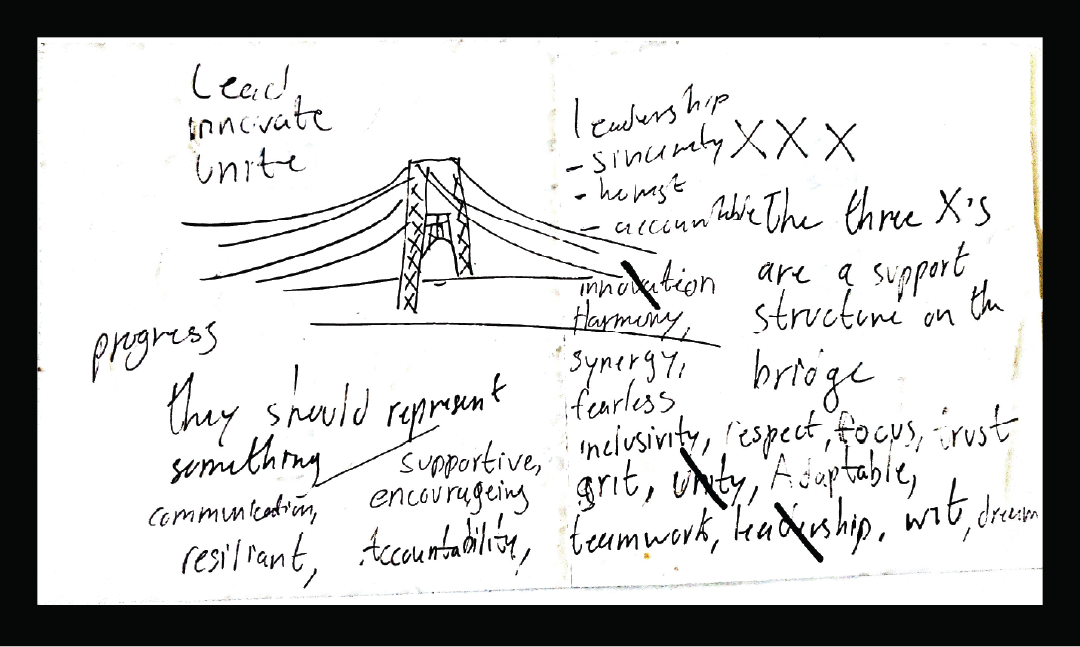 Lead
innovate
unite
progress
they should represent
something
communication,
resiliant,
supportive,
encourageing
Accountability,
leadership
- sincerety
- honest
- accountable
XXX
The three X's
are a support
structure on the
bridge
innovation
Harmony,
synergy,
fearless
inclusivity, respect, focus, trust
grit, unity, Adaptable,
teamwork, leadership, wit, dream